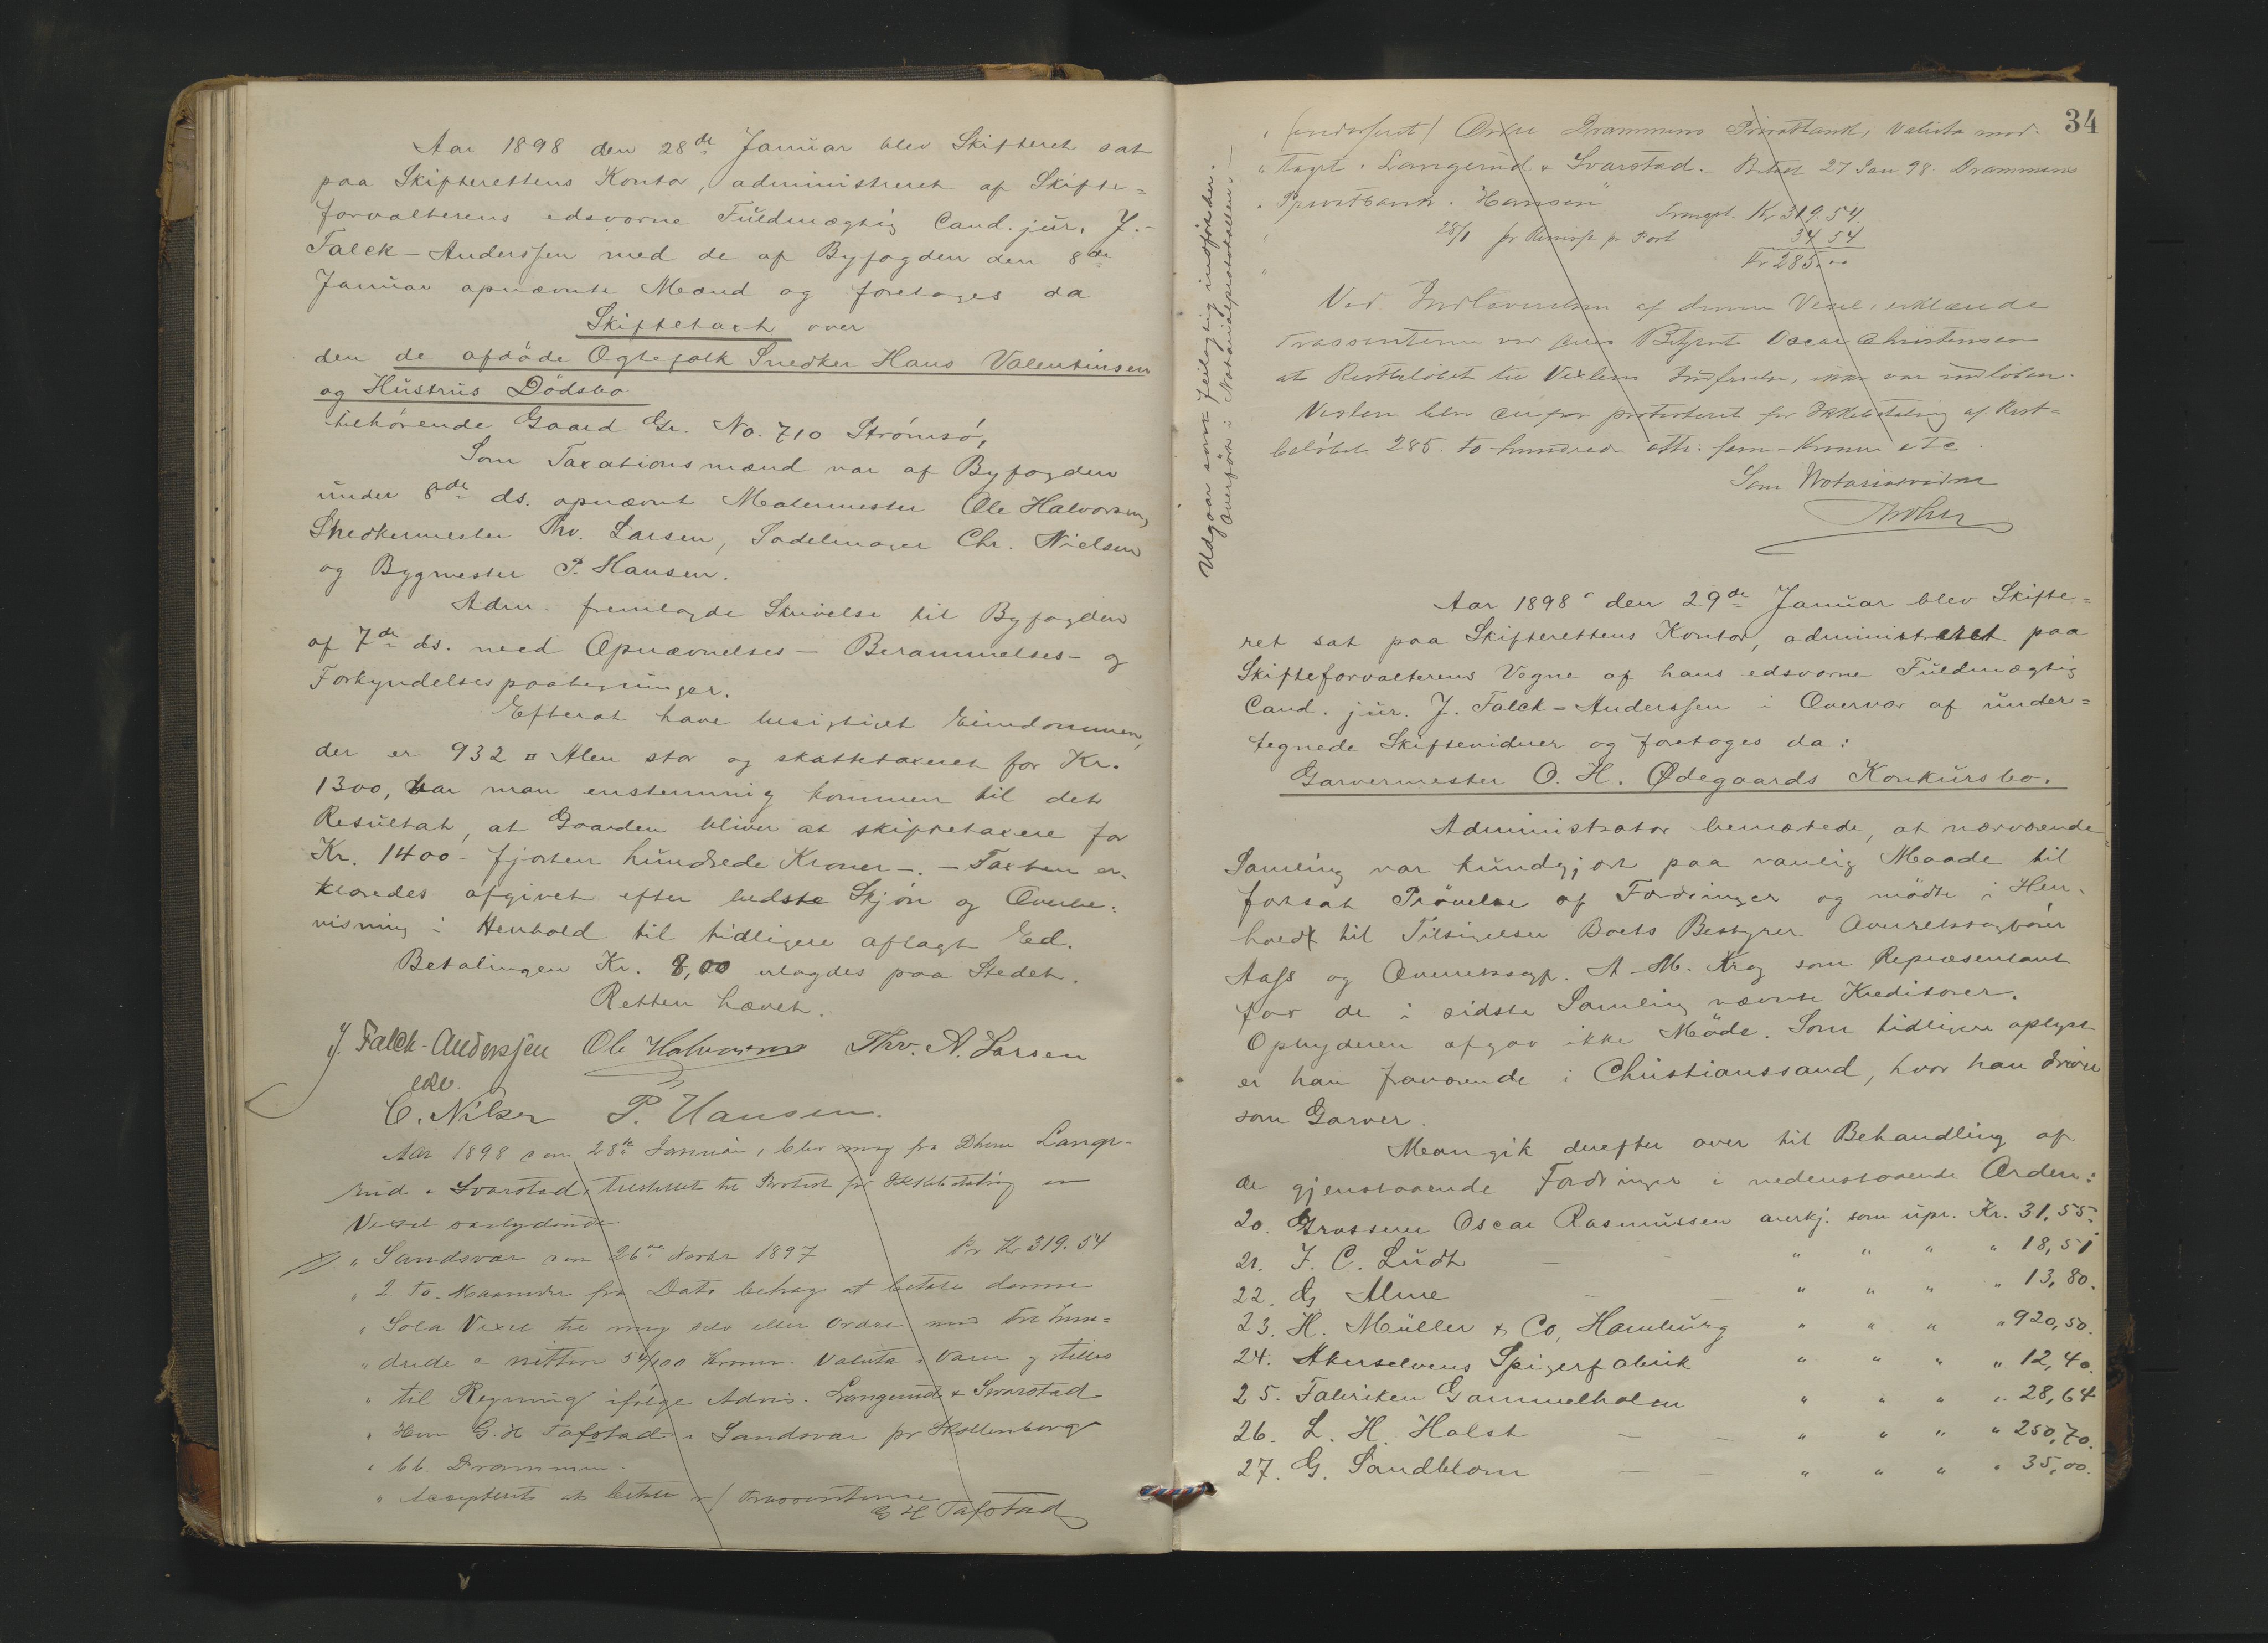 Aar 1898 den 28de Januar blev Skifteret sat
paa Skifterettens Kontor, administreret af Skifte=
forvalterens edsvorne Fuldmægtig Cand. jur. J.-
Falck-Anderssen med de af Byfogden den 8de
Januar opnævnte Mænd og foretoges da
Skiftetaxt over
den de afdöde Ægtefolk Snedker Hans Valentinsen
og Hustrus Dödsbo
tilhörende Gaard Gr. No. 710 Strömsö,
Som Taxationsmænd var af Byfogden
under 8de ds. opnævnt Malermester Ole Halvorsen,
Snedkermester Thv. Larsen, Sadelmager Chr. Nielsen
og Bygmester P. Hansen.
Adm. fremlagde Skrivelse til Byfogden
af 7de ds. med Opnævnelses- Berammelses- og
Forkyndelsespaategninger.
Efterat have besigtiget Eiendommen,
der er 932 □ Alen stor og skattetaxeret for Kr.
1300, var man enstemmig kommen til det
Resultat, at Gaarden bliver at skiftetaxere for
Kr. 1400 - fjorten hundrede Kroner -. - Taxten er-
klæredes afgivet efter bedste Skjön og Overbe=
visning i Henhold til tidligere aflagt Ed.
Betalingen Kr. 8,00 erlagdes paa Stedet.
Retten hævet.
J. Falck-Anderssen Ole Halvorsen Thv. A. Larsen
edsv.
C. Nilsen P. Hansen.
Aar 1898 den 28de Januar, blev mig fra Dherr Lange-
rud & Svarstad, tilstillet til Protest for Ikkebetaling en
Vexel saalydende.
" Sandsvær den 26de Novbr 1897 Pr Kr 319.54
" 2 to Maaneder fra Dato behag at betale denne
" Sola Vexel til mig selv eller Ordre med tre hun=
" drede & nitten 54/100 Kroner. Valuta i Varer og stilles
" til Regning ifölge Advis. Langerud & Svarstad
" Herr G. H Tafstad i Sandsvær pr Skollenborg
" bb. Drammen.
" Accepteret at betale / Trassenterne
G H Tafstad
34
" (endosseret) Ordre Drammens Privatbank, Valuta mod-
" taget. Langerud & Svarstad. Betalt 27 Jan 98. Drammens
" Privatbank. Hansen"
Kr 319.54.
28/1 pr Rimesse pr Post 34 54
Kr 285,00
Ved Indleverelsen af denne Vexel, erklærede
Trassenterne ved Betjent Oscar Christensen
at Restbelöbet til Vexlens Indfrielse, ikke var indlöben.
Vexlen blev derfor protesteret for Ikkebetaling af Rest=
belöbet 285 to-hundrede otti fem-Kroner etc.
Som Notarialvidne
Udgaar som feilagtig indfört her.
Overfört i Notarialprotokollen.
Aar 1898 den 29de Januar blev Skifte=
ret sat paa Skifterettens Kontor, administreret paa
Skifteforvalterens Vegne af hans edsvorne Fuldmægtig
Cand. jur. J. Falck-Anderssen i Overvær af under=
tegnede Skiftevidner og foretoges da:
Garvermester O. H. Ødegaards Konkursbo.
Administrator bemærkede, at nærværende
Samling var kundgjort paa vanlig Maade til
fortsat Prövelse af Fordringer og mödte i Hen-
hold til Tilsigelse Boets Bestyrer Overretssagförer
Aass og Overretssagf. A. M. Krag som Repræsentant
for de i sidste Samling nævnte Kreditorer.
Opbyderen afgav ikke Möde. Som tidligere oplyst
er han fraværende i Christianssand, hvor han driver
som Garver.
Man gik derefter over til Behandling af
de gjenstaaende Fordringer i nedenstaaende Orden:
20. Grosserer Oscar Rasmussen anerkj. som upr. Kr. 31,55.
21. J. C. Ludt — — " " " " 18,51
22. G Alme — — " " " " 13,80.
23. H. Müller & Co, Hamburg " " " " 920,50.
24. Akerselvens Spigerfabrik " " " " 12,40.
25. Fabriken Gammelholm " " " " 28,64
26. L. H. Holst — — " " " " 250,70.
27. G. Sandblom — — " " " " 35,00.